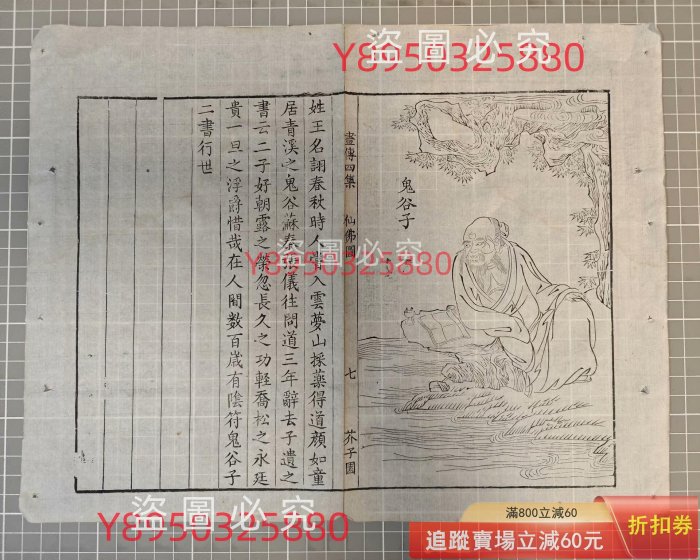 盜圖必究
Y8950325880
鬼谷子
畫傳四集
仙佛圖
七
芥子園
姓王名詡春秋時人嘗入雲夢山採藥得道顏如童
居青溪之鬼谷蘇秦儀往問道三年辭去子遺之
書云二子好朝露之榮忽長久之功輕喬松之永延
貴一旦之浮爵惜哉在人間数百歲有陰符鬼谷子
二書行世
盜圖必究
Y8950325880
盜圖必究
Y8950325880
滿800立減60
追蹤賣場立減60元
折扣券